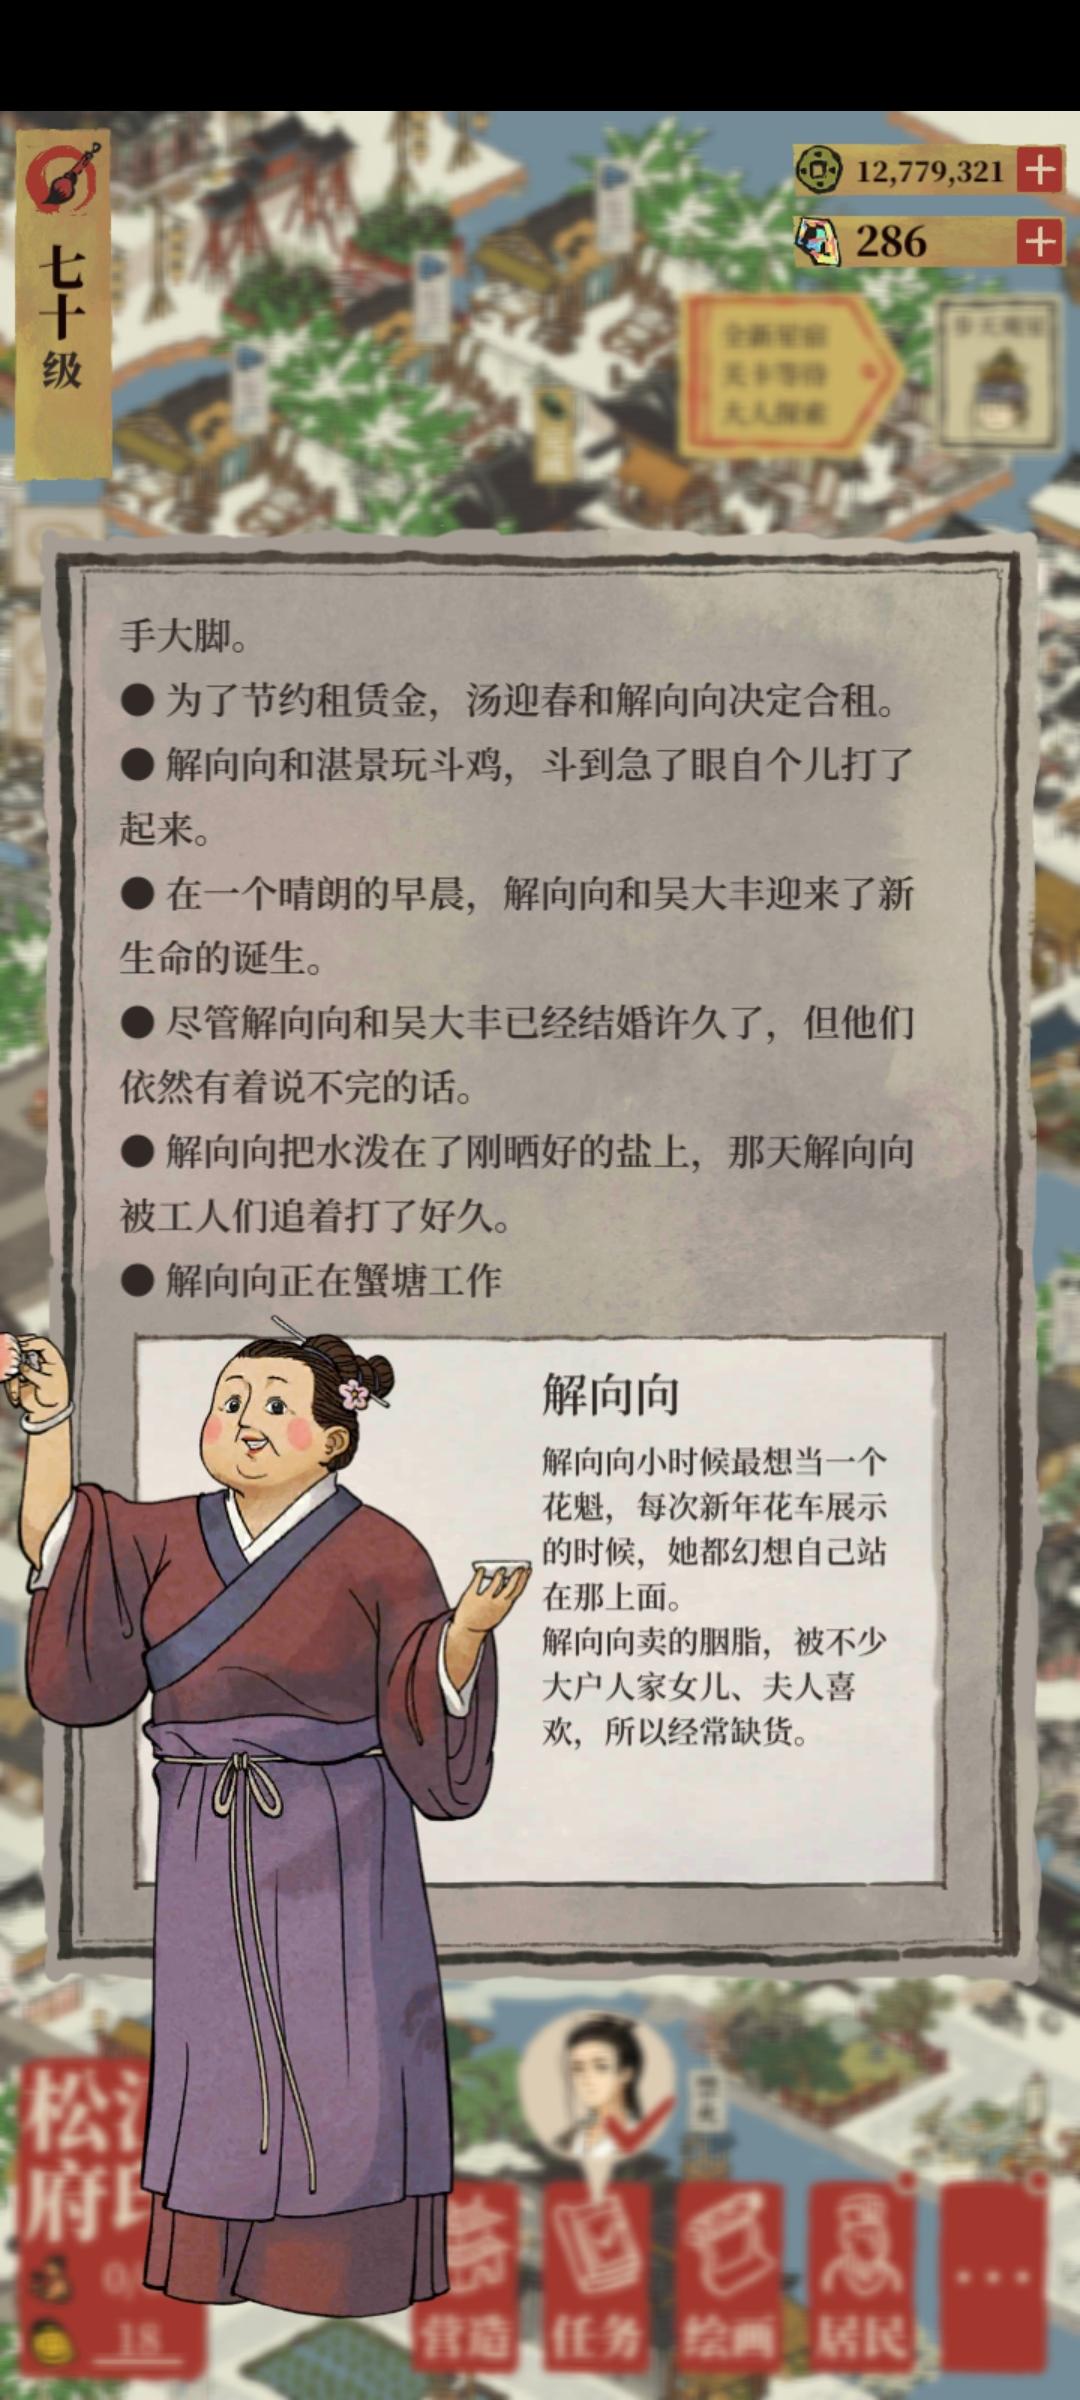 七十级
12,779,321
286
全新星宿
关卡等待
大人探索
手大脚。
● 为了节约租赁金，汤迎春和解向向决定合租。
● 解向向和湛景玩斗鸡，斗到急了眼自个儿打了
起来。
● 在一个晴朗的早晨，解向向和吴大丰迎来了新
生命的诞生。
● 尽管解向向和吴大丰已经结婚许久了，但他们
依然有着说不完的话。
● 解向向把水泼在了刚晒好的盐上，那天解向向
被工人们追着打了好久。
● 解向向正在蟹塘工作
解向向
解向向小时候最想当一个
花魁，每次新年花车展示
的时候，她都幻想自己站
在那上面。
解向向卖的胭脂，被不少
大户人家女儿、夫人喜
欢，所以经常缺货。
松江
府
18
营造
任务
绘画
居民